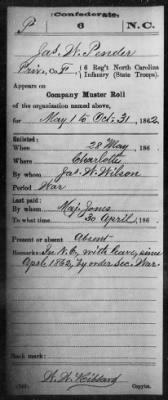 Confederate.
P 6 N.C.
Jas. W. Pender
Priv., Co. F, 6 Reg't North Carolina
Infantry (State Troops).
Appears on
Company Muster Roll
of the organization named above,
for May 1 to Oct. 31, 1862.
Enlisted:
When 28 May, 186
Where Charlotte
By whom Jas. W. Wilson
Period War
Last paid:
By whom Maj. Jones
To what time 30 April, 186
Present or absent Absent
Remarks: In N.C. with leave, since
Apr 6 1862, by order Sec. War.
Book mark:
W. W. Hibbard
Copyist.